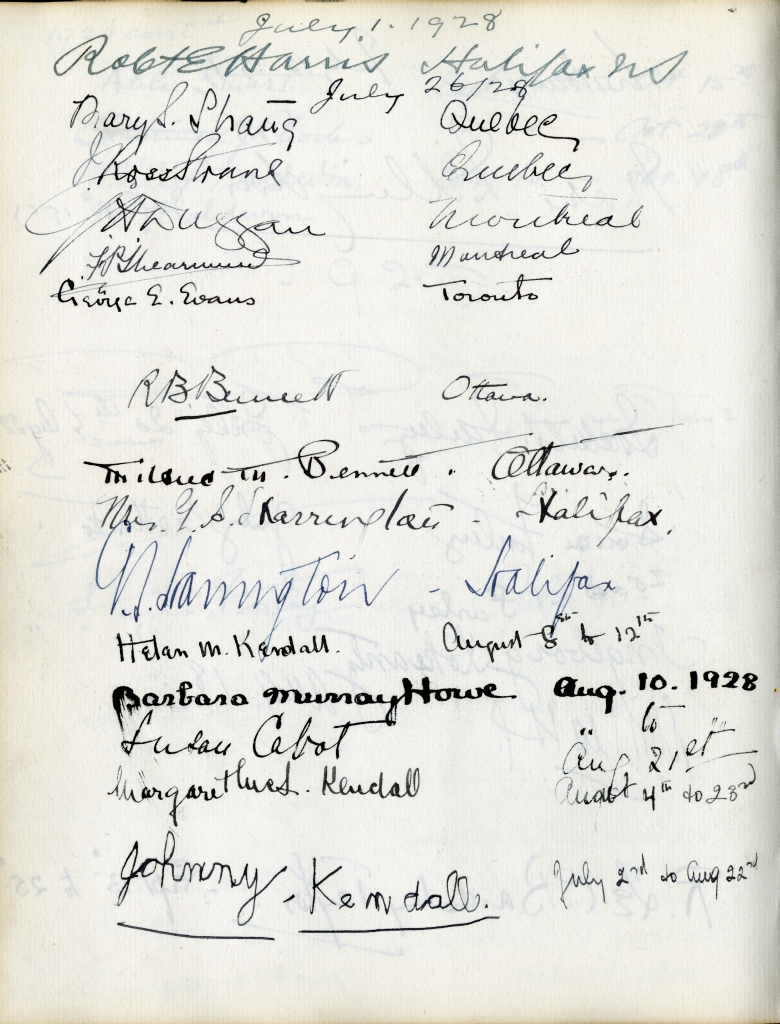 July 1. 1928
Robt E Harris Halifax NS
July 26/28
Mary S. Quebec
J Ross Quebec
G H Duggan Montreal
F.P. Shearwood Montreal
George E. Evans Toronto
R B Bennett Ottawa.
Mildred M. Bennett. Ottawa.
Mrs. G. S. Harrington - Halifax.
G. S. Harrington - Halifax
Helen M. Kendall. August 8th to 12th
Barbara Murray Howe Aug. 10. 1928
Susan Cabot " to "
Aug 21st
Margaret L. Kendall August 4th to 23rd
Johnny Kendall. July 2nd to Aug 22nd